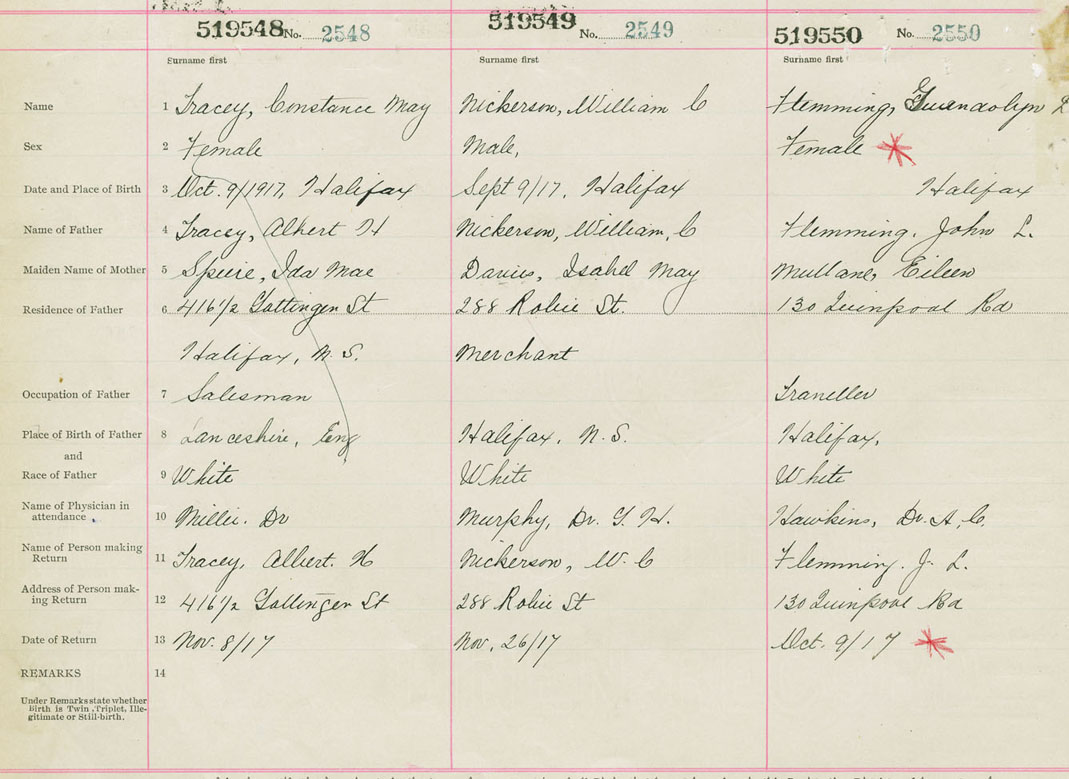 519548 No. 2548 519549 No. 2549 519550 No. 2550
Surname first Surname first Surname first
Name 1 Tracey, Constance May Nickerson, William C Flemming, Gwendolyn
Sex 2 Female Male, Female
Date and Place of Birth 3 Oct. 9/1917, Halifax Sept 9/17, Halifax Halifax
Name of Father 4 Tracey, Albert H Nickerson, William, C Flemming, John L.
Maiden Name of Mother 5 Ida Mae Davies, Isabel May Mullane, Eileen
Residence of Father 6 416 1/2 Gottingen St 288 Robie St. 130 Quinpool Rd
Halifax, N.S. Merchant
Occupation of Father 7 Salesman Traveller
Place of Birth of Father 8 Lanceshire, Eng Halifax, N.S. Halifax,
and
Race of Father 9 White White White
Name of Physician in
attendance 10 Dr Murphy, Dr. G. H. Hawkins, Dr. A. C.
Name of Person making
Return 11 Tracey, Albert. H Nickerson, W. C Flemming. J. L.
Address of Person mak-
ing Return 12 416 1/2 Gottingen St 288 Robie St 130 Quinpool Rd
Date of Return 13 Nov. 8/17 Nov. 26/17 Oct. 9/17
REMARKS 14
Under Remarks state whether
Birth is Twin, Triplet, Ille-
gitimate or Still-birth.